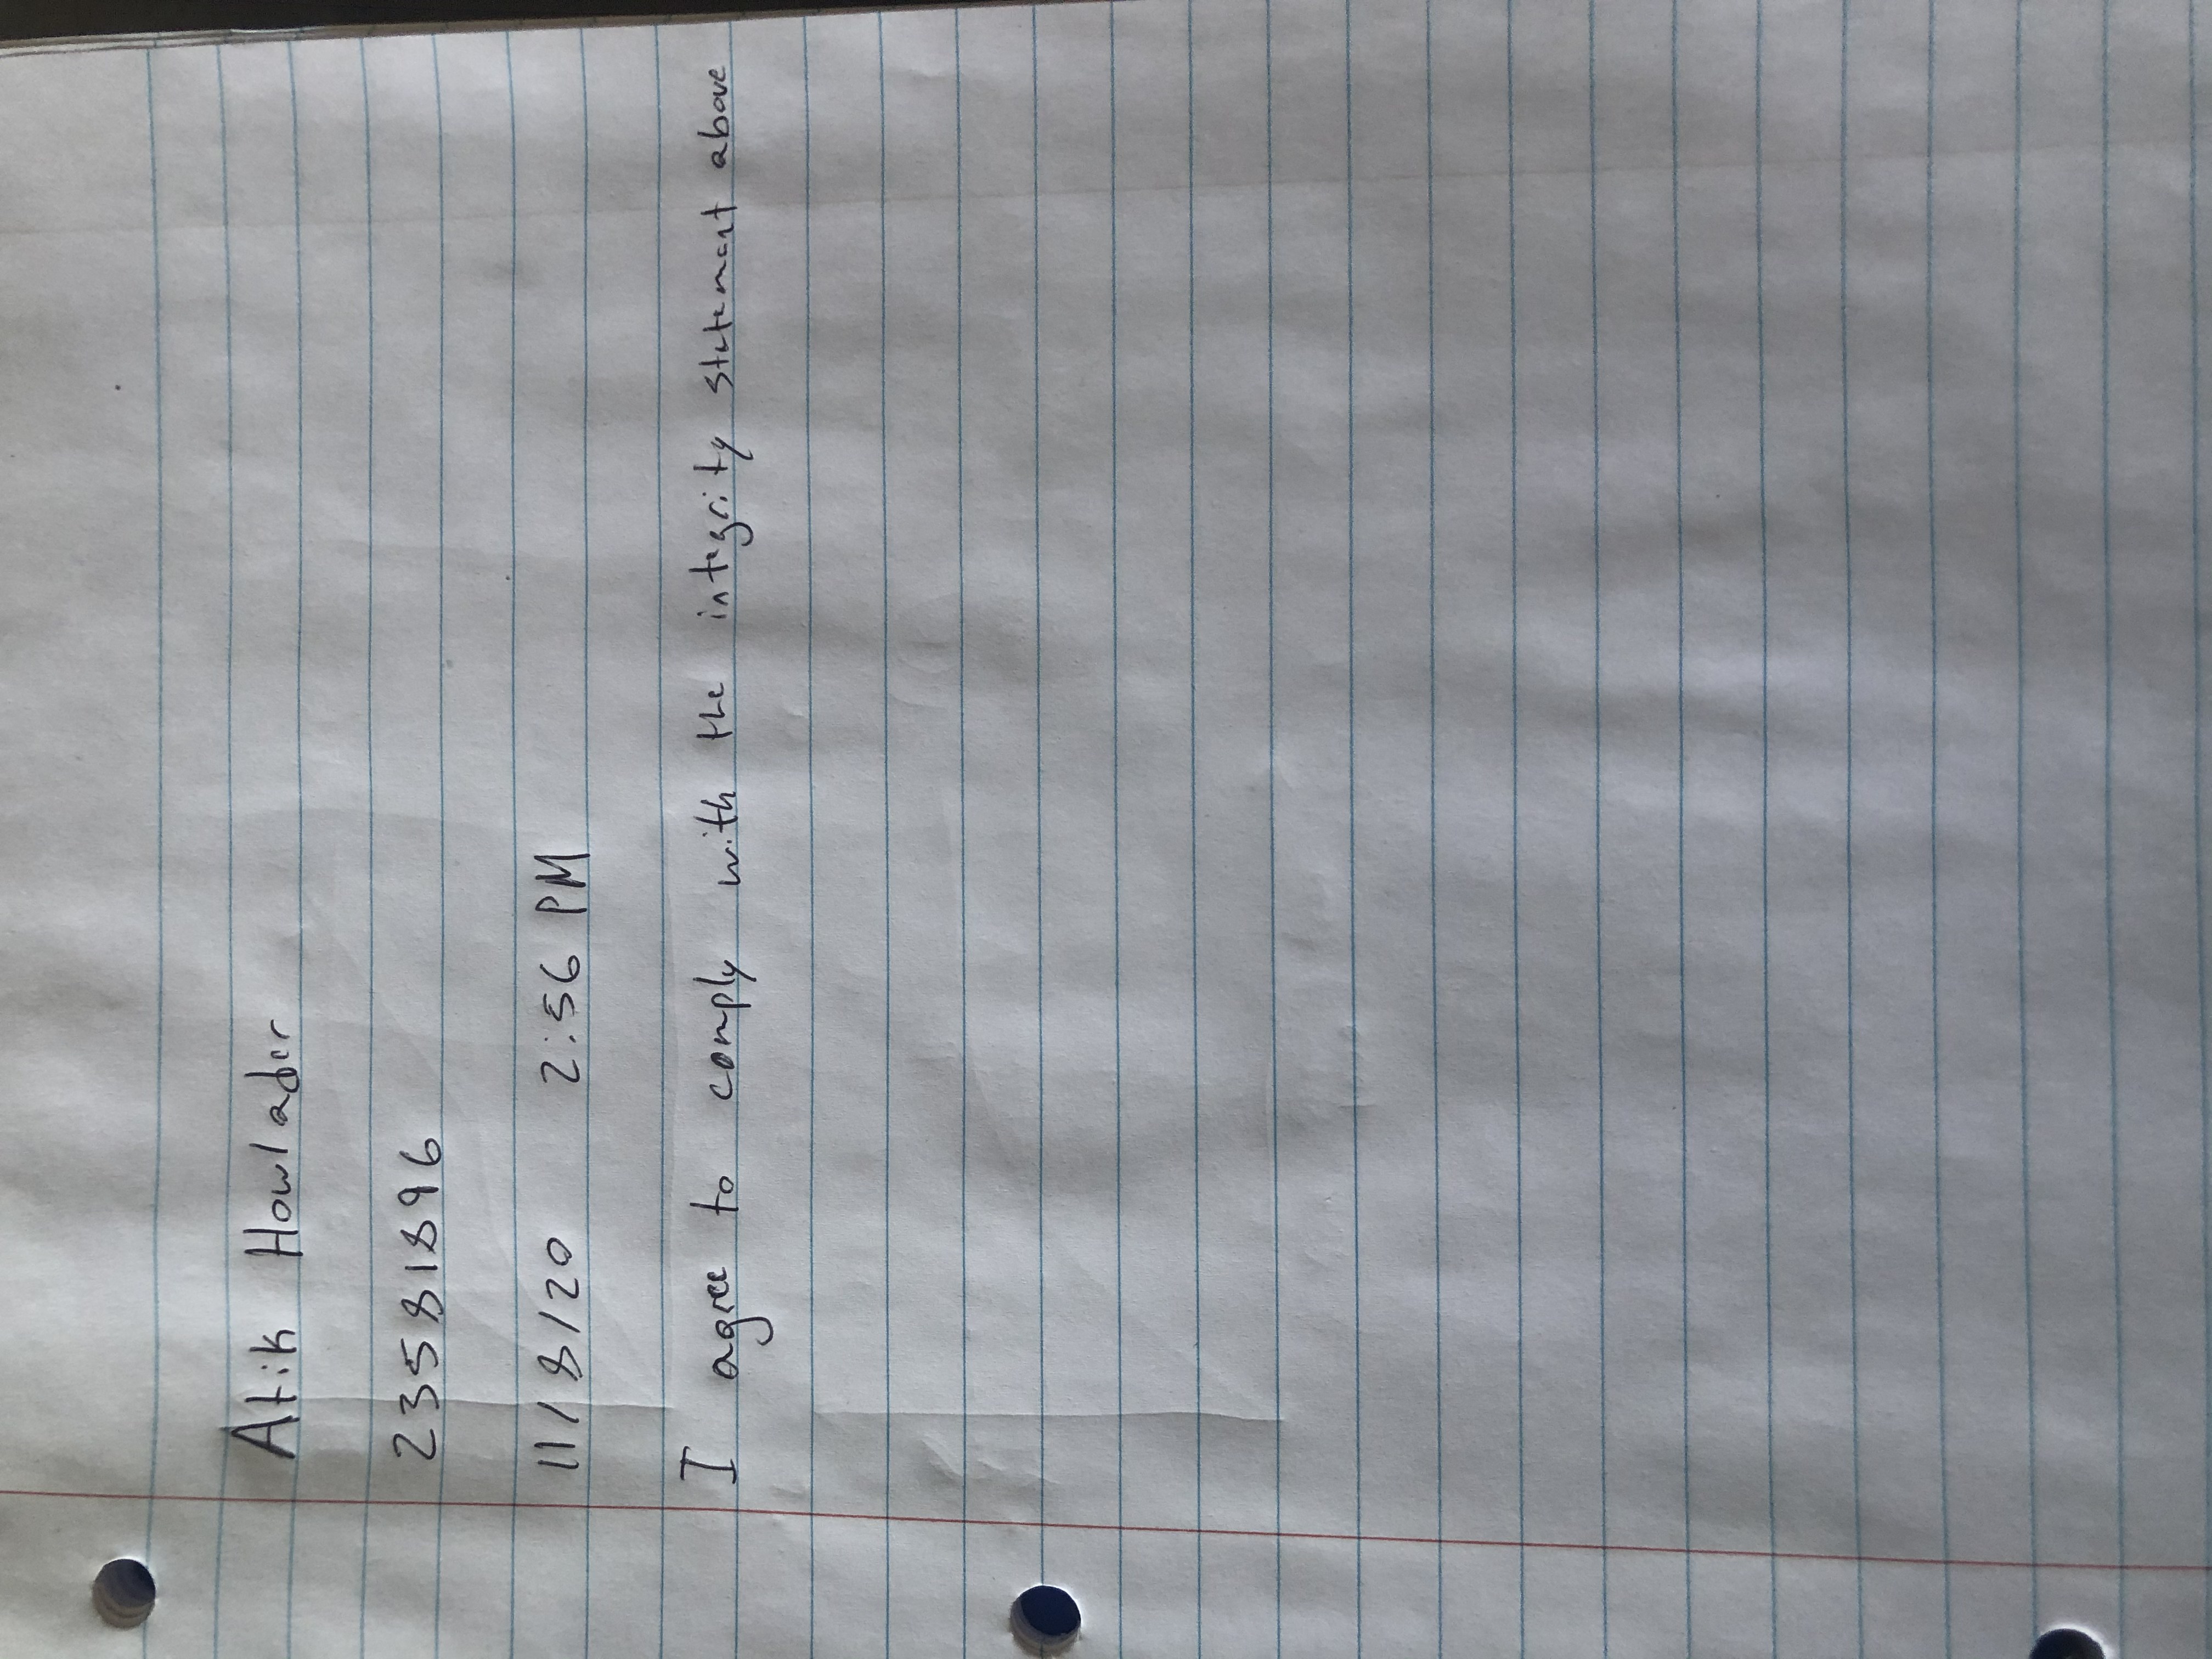 Atik Howlader
23581896
11/8/20 2:56 PM
I agree to comply with the integrity statement above